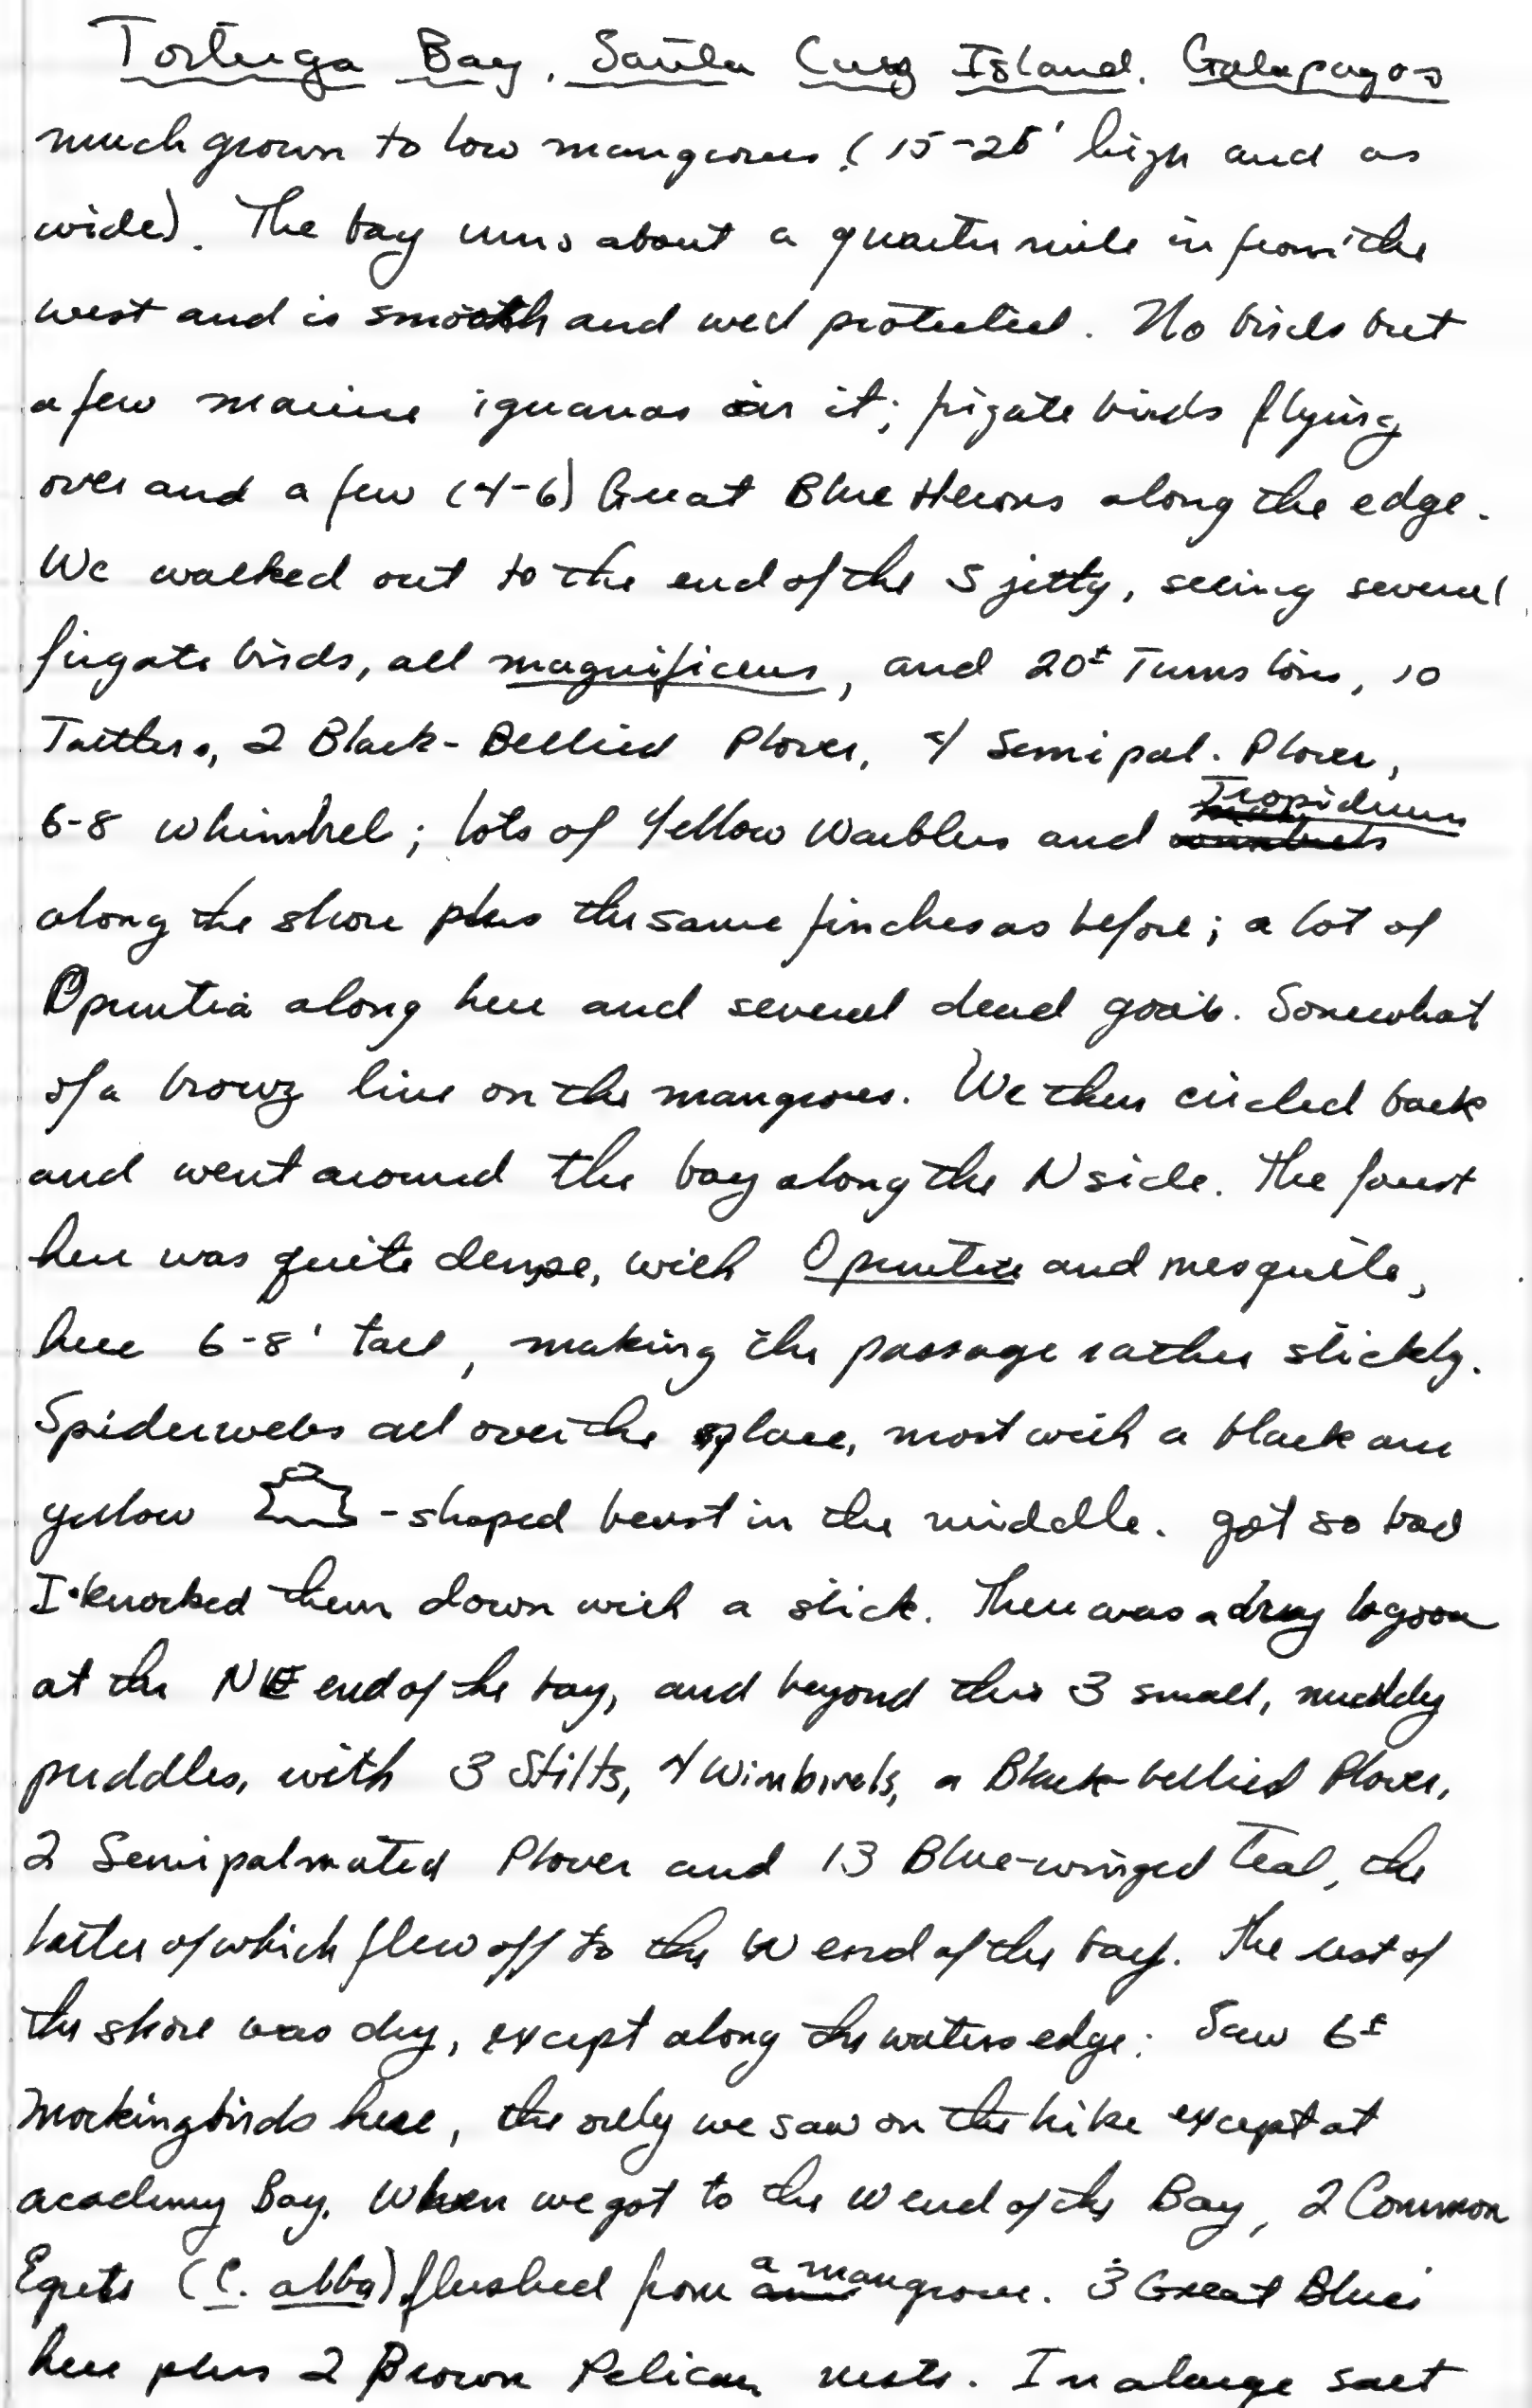 Tortuga Bay, Santa Cruz Island, Galapagos
much grown to low mangroves (15-25' high and as
wide). The bay runs about a quarter mile in from the
west and is smooth and well protected. No birds but
a few marine iguanas in it; frigate birds flying
over and a few (4-6) Great Blue Herons along the edge.
We walked out to the end of the S jetty, seeing several
frigate birds, all magnificens, and 20± Turnstones, 10
Tattlers, 2 Black-Bellied Plover, 4 Semipal. Plover,
6-8 whimbrel; lots of Yellow Warblers and Tropidurus
along the shore plus the same finches as before; a lot of
Opuntia along here and several dead goats. Somewhat
of a browz line on the mangroves. We then circled back
and went around the bay along the N side. The forest
here was quite dense, with Opuntia and mesquite,
here 6-8' tall, making the passage rather stickly.
Spiderwebs all over the place, most with a black and
yellow -shaped beast in the middle. got so bad
I knocked them down with a stick. There was a dray lagoon
at the NE end of the bay, and beyond this 3 small, muddy
puddles, with 3 Stilts, 4 Wimbrels, a Black-bellied Plover,
2 Semipalmated Plover and 13 Blue-winged Teal, the
latter of which flew off to the W end of the bay. The rest of
the shore was dry, except along the waters edge. Saw 6±
Mockingbirds here, the only we saw on the hike except at
academy Bay. When we got to the W end of the Bay, 2 Common
Egrets (C. alba) flushed from a mangrove. 3 Great Blues
here plus 2 Brown Pelican nests. In a large salt